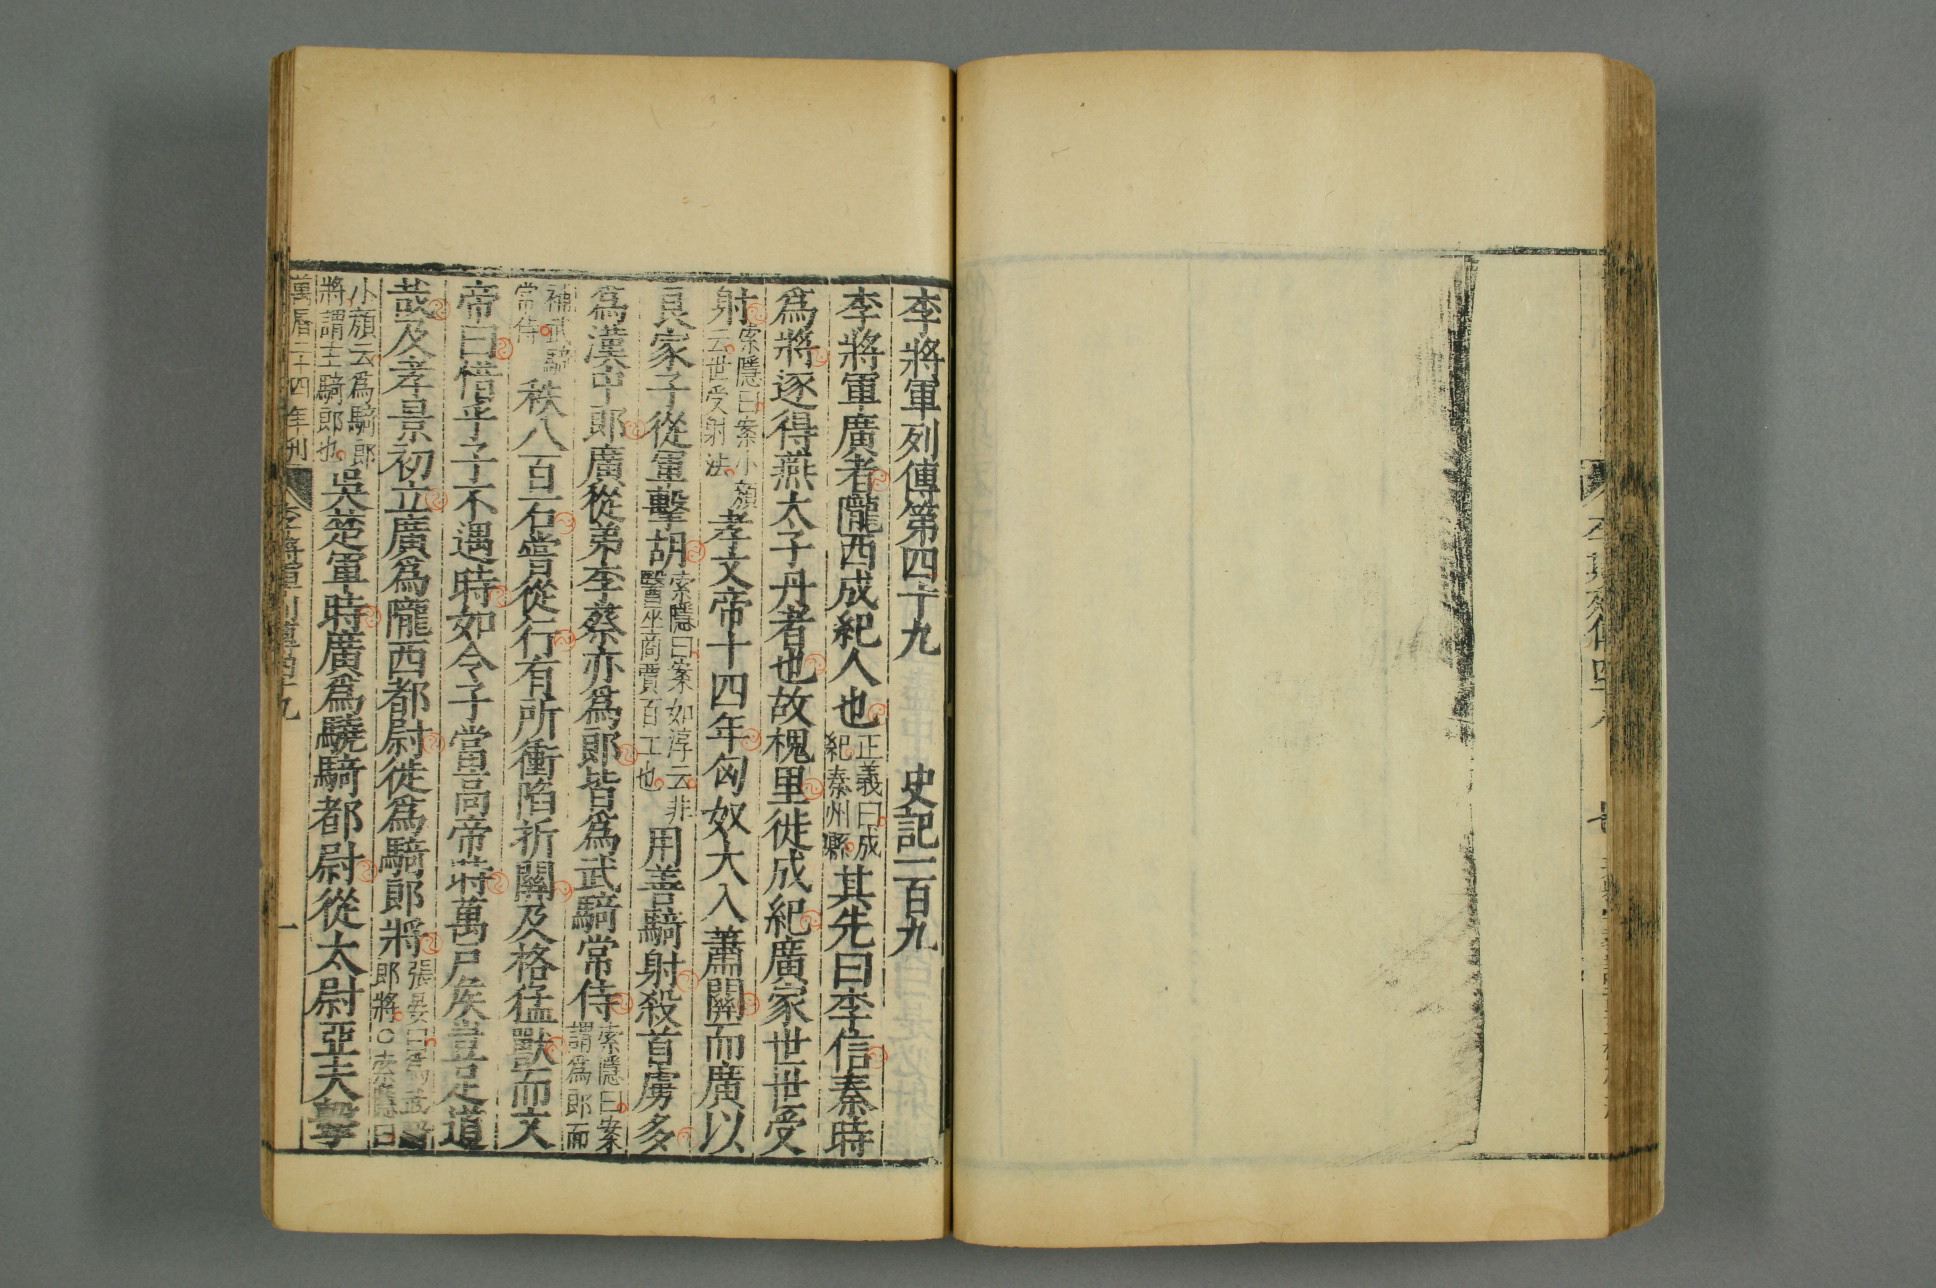 李將軍列傳第四十九 史記一百九
李將軍廣者隴西成紀人也正義曰成紀秦州縣其先曰李信秦時
爲將逐得燕太子丹者也故槐里徙成紀廣家世世受
射索隱曰案小顏云世受射法孝文帝十四年匈奴大入蕭關而廣以
良家子從軍擊胡索隱曰案如淳云非醫巫商賈百工也用善騎射殺首虜多
爲漢中郎廣從弟李蔡亦爲郎皆爲武騎常侍索隱曰案謂爲郎而
補武騎常侍秩八百石甞從行有所衝陷折關及格猛獸而文
帝曰惜乎子不遇時如令子當高帝時萬戶侯豈足道
㦲及孝景初立廣爲隴西都尉徙爲騎郎將張晏曰爲武騎郎將○索隱曰
小顏云爲騎郎將謂主騎郎也吳楚軍時廣爲驍騎都尉從太尉亞夫擊
萬曆二十四年刊 李將軍列傳四十九 一